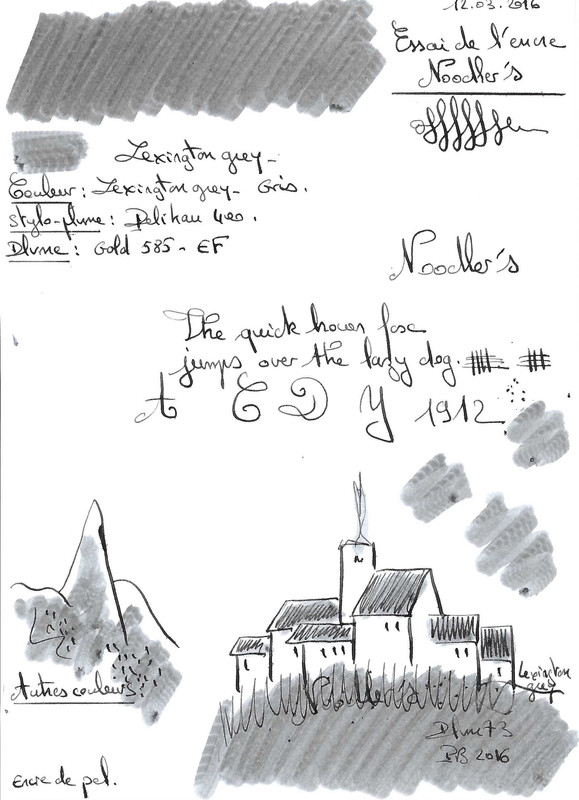 12.03.2016
Essai de l'encre
Noodler's
Lexington grey -
Couleur : Lexington grey - Gris.
Stylo-plume : Pelikan 400.
Plume : Gold 585 - EF
Noodler's
The quick brown fox
jumps over the lazy dog.
A C D Y 1912
Lexington
grey
Autres couleurs
Noodler's
Plume 73
PB 2016
Encre de